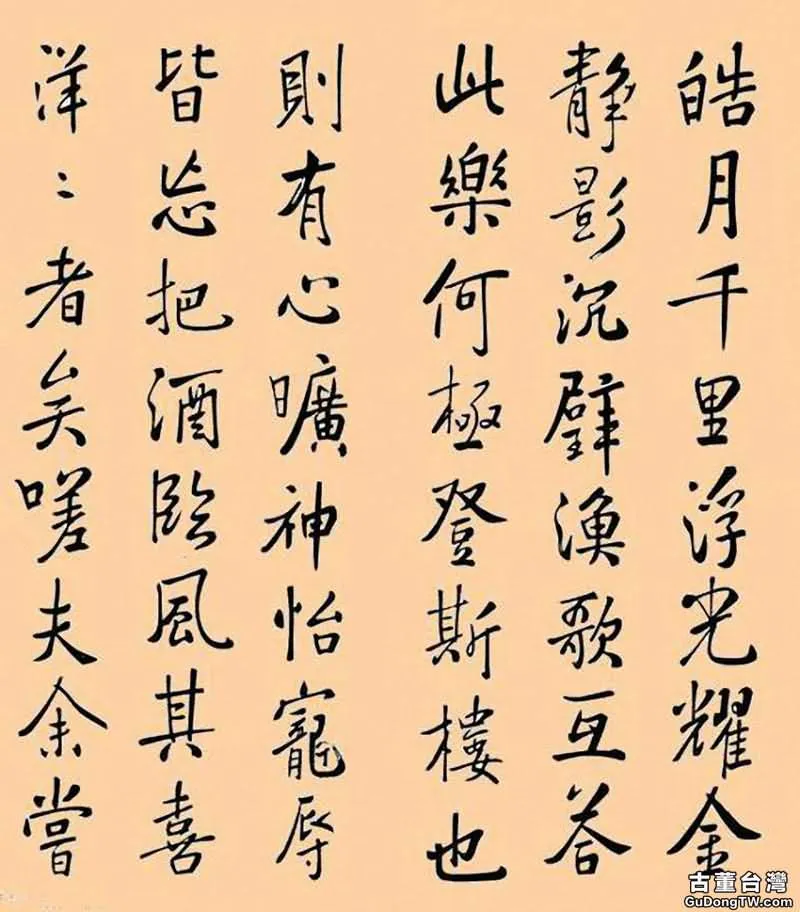 皓月千里浮光耀金
静影沉璧渔歌互答
此樂何極登斯樓也
則有心曠神怡寵辱
皆忘把酒臨風其喜
洋〻者矣嗟夫余嘗
古董台灣
GuDongTW.com